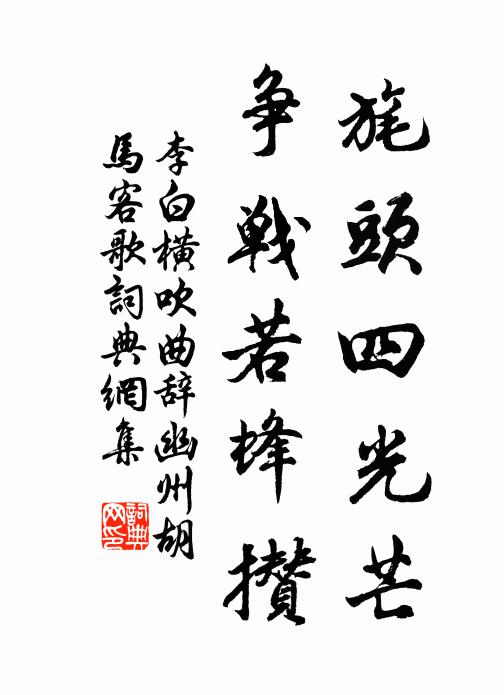 旄頭四光芒
争戰若蜂攢
李白橫吹曲辞幽州胡
馬客歌詞典網集
詞典网印